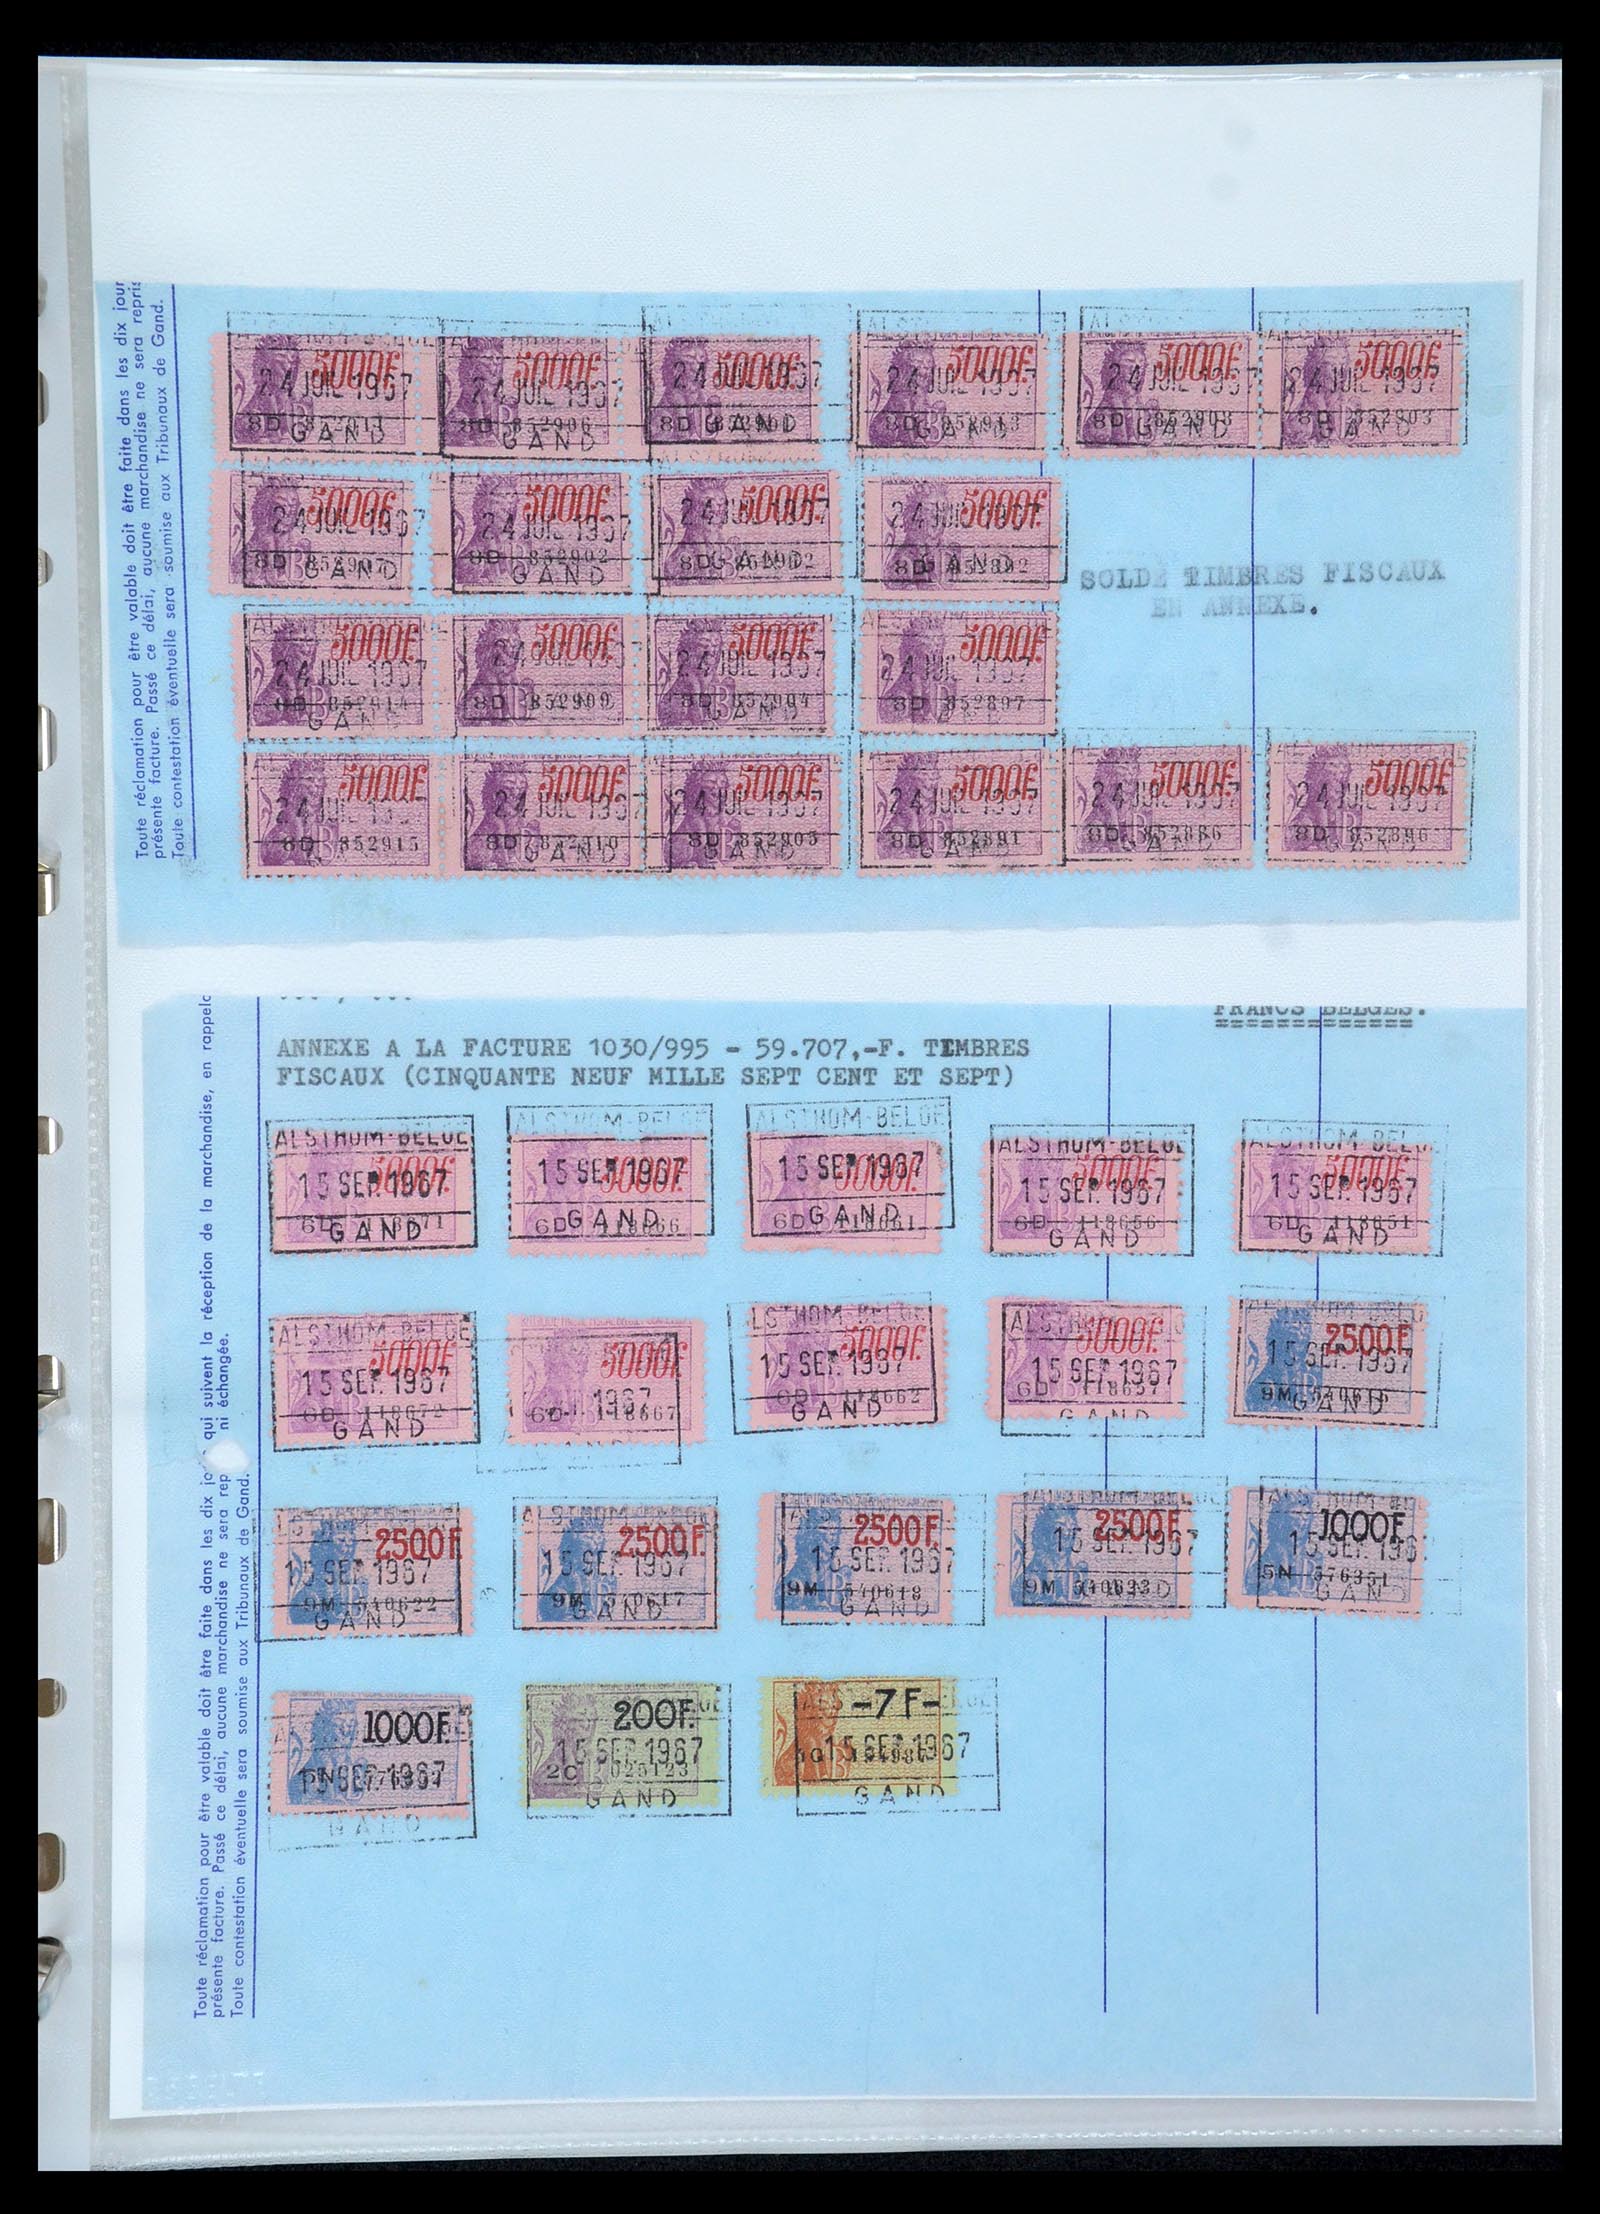 Toute réclamation pour être valable doit être faite dans les dix jour
présente facture. Passé ce délai, aucune marchandise ne sera repris
Toute contestation éventuelle sera soumise aux Tribunaux de Gand.
5000F. 5000F. 5000F. 5000F. 5000F. 5000F.
24 JUIL 1967 24 JUIL 1967 24 JUIL 1967 24 JUIL 1967 24 JUIL 1967 24 JUIL 1967
8D 8D 852906 8D 8D 852913 8D 852908 8D 852903
GAND GAND GAND GAND GAND GAND
5000F. 5000F. 5000F. 5000F.
24 JUIL 1967 24 JUIL 1967 24 JUIL 1967 24 JUIL 1967
8D 8D 852902 8D 8D 852892
GAND GAND GAND GAND
SOLDE TIMBRES FISCAUX
EN ANNEXE.
5000F. 5000F. 5000F. 5000F.
24 JUIL 1967 24 JUIL 1967 24 JUIL 1967 24 JUIL 1967
8D 852914 8D 852909 8D 852904 8D 852897
GAND GAND
5000F. 5000F. 5000F. 5000F. 5000F. 5000F.
24 JUIL 1967 24 JUIL 1967 24 JUIL 1967 24 JUIL 1967 24 JUIL 1967 24 JUIL 1967
8D 852915 8D 852910 8D 852905 8D 852891 8D 852886 8D 852896
GAND GAND GAND GAND GAND GAND
FRANCS BELGES.
ANNEXE A LA FACTURE 1030/995 - 59.707,-F. TIMBRES
FISCAUX (CINQUANTE NEUF MILLE SEPT CENT ET SEPT)
Toute réclamation pour être valable doit être faite dans les dix jo qui suivent la réception de la marchandise, en rappelc
présente facture. Passé ce délai, aucune marchandise ne sera rep ni échangée.
Toute contestation éventuelle sera soumise aux Tribunaux de Gand.
ALSTHOM-BELGE ALSTHOM-BELGE ALSTHOM-BELGE ALSTHOM-BELGE ALSTHOM-BELGE
5000F. 5000F. 5000F. 5000F. 5000F.
15 SEP. 1967 15 SEP. 1967 15 SEP. 1967 15 SEP. 1967 15 SEP. 1967
6D 118671 6D 118666 6D 118661 6D 118656 6D 118651
GAND GAND GAND GAND GAND
ALSTHOM-BELGE ALSTHOM-BELGE
5000F. 5000F. 5000F. 5000F. 2500F.
15 SEP. 1967 1967 15 SEP. 1967 15 SEP. 1967 15 SEP. 1967
6D 118672 6D 118667 6D 118662 6D 118657 9M 540616
GAND GAND GAND GAND
2500F. 2500F. 2500F. 2500F. 1000F.
15 SEP. 1967 15 SEP. 1967 15 SEP. 1967 15 SEP. 1967 15 SEP. 196
9M 540622 9M 540617 9M 540618 9M 540623 5N 576351
GAND GAND GAND GAND GAND
1000F. 200F. -7F-
15 SEP. 1967 15 SEP. 1967 15 SEP. 1967
5N 2C 025123
GAND GAND GAND